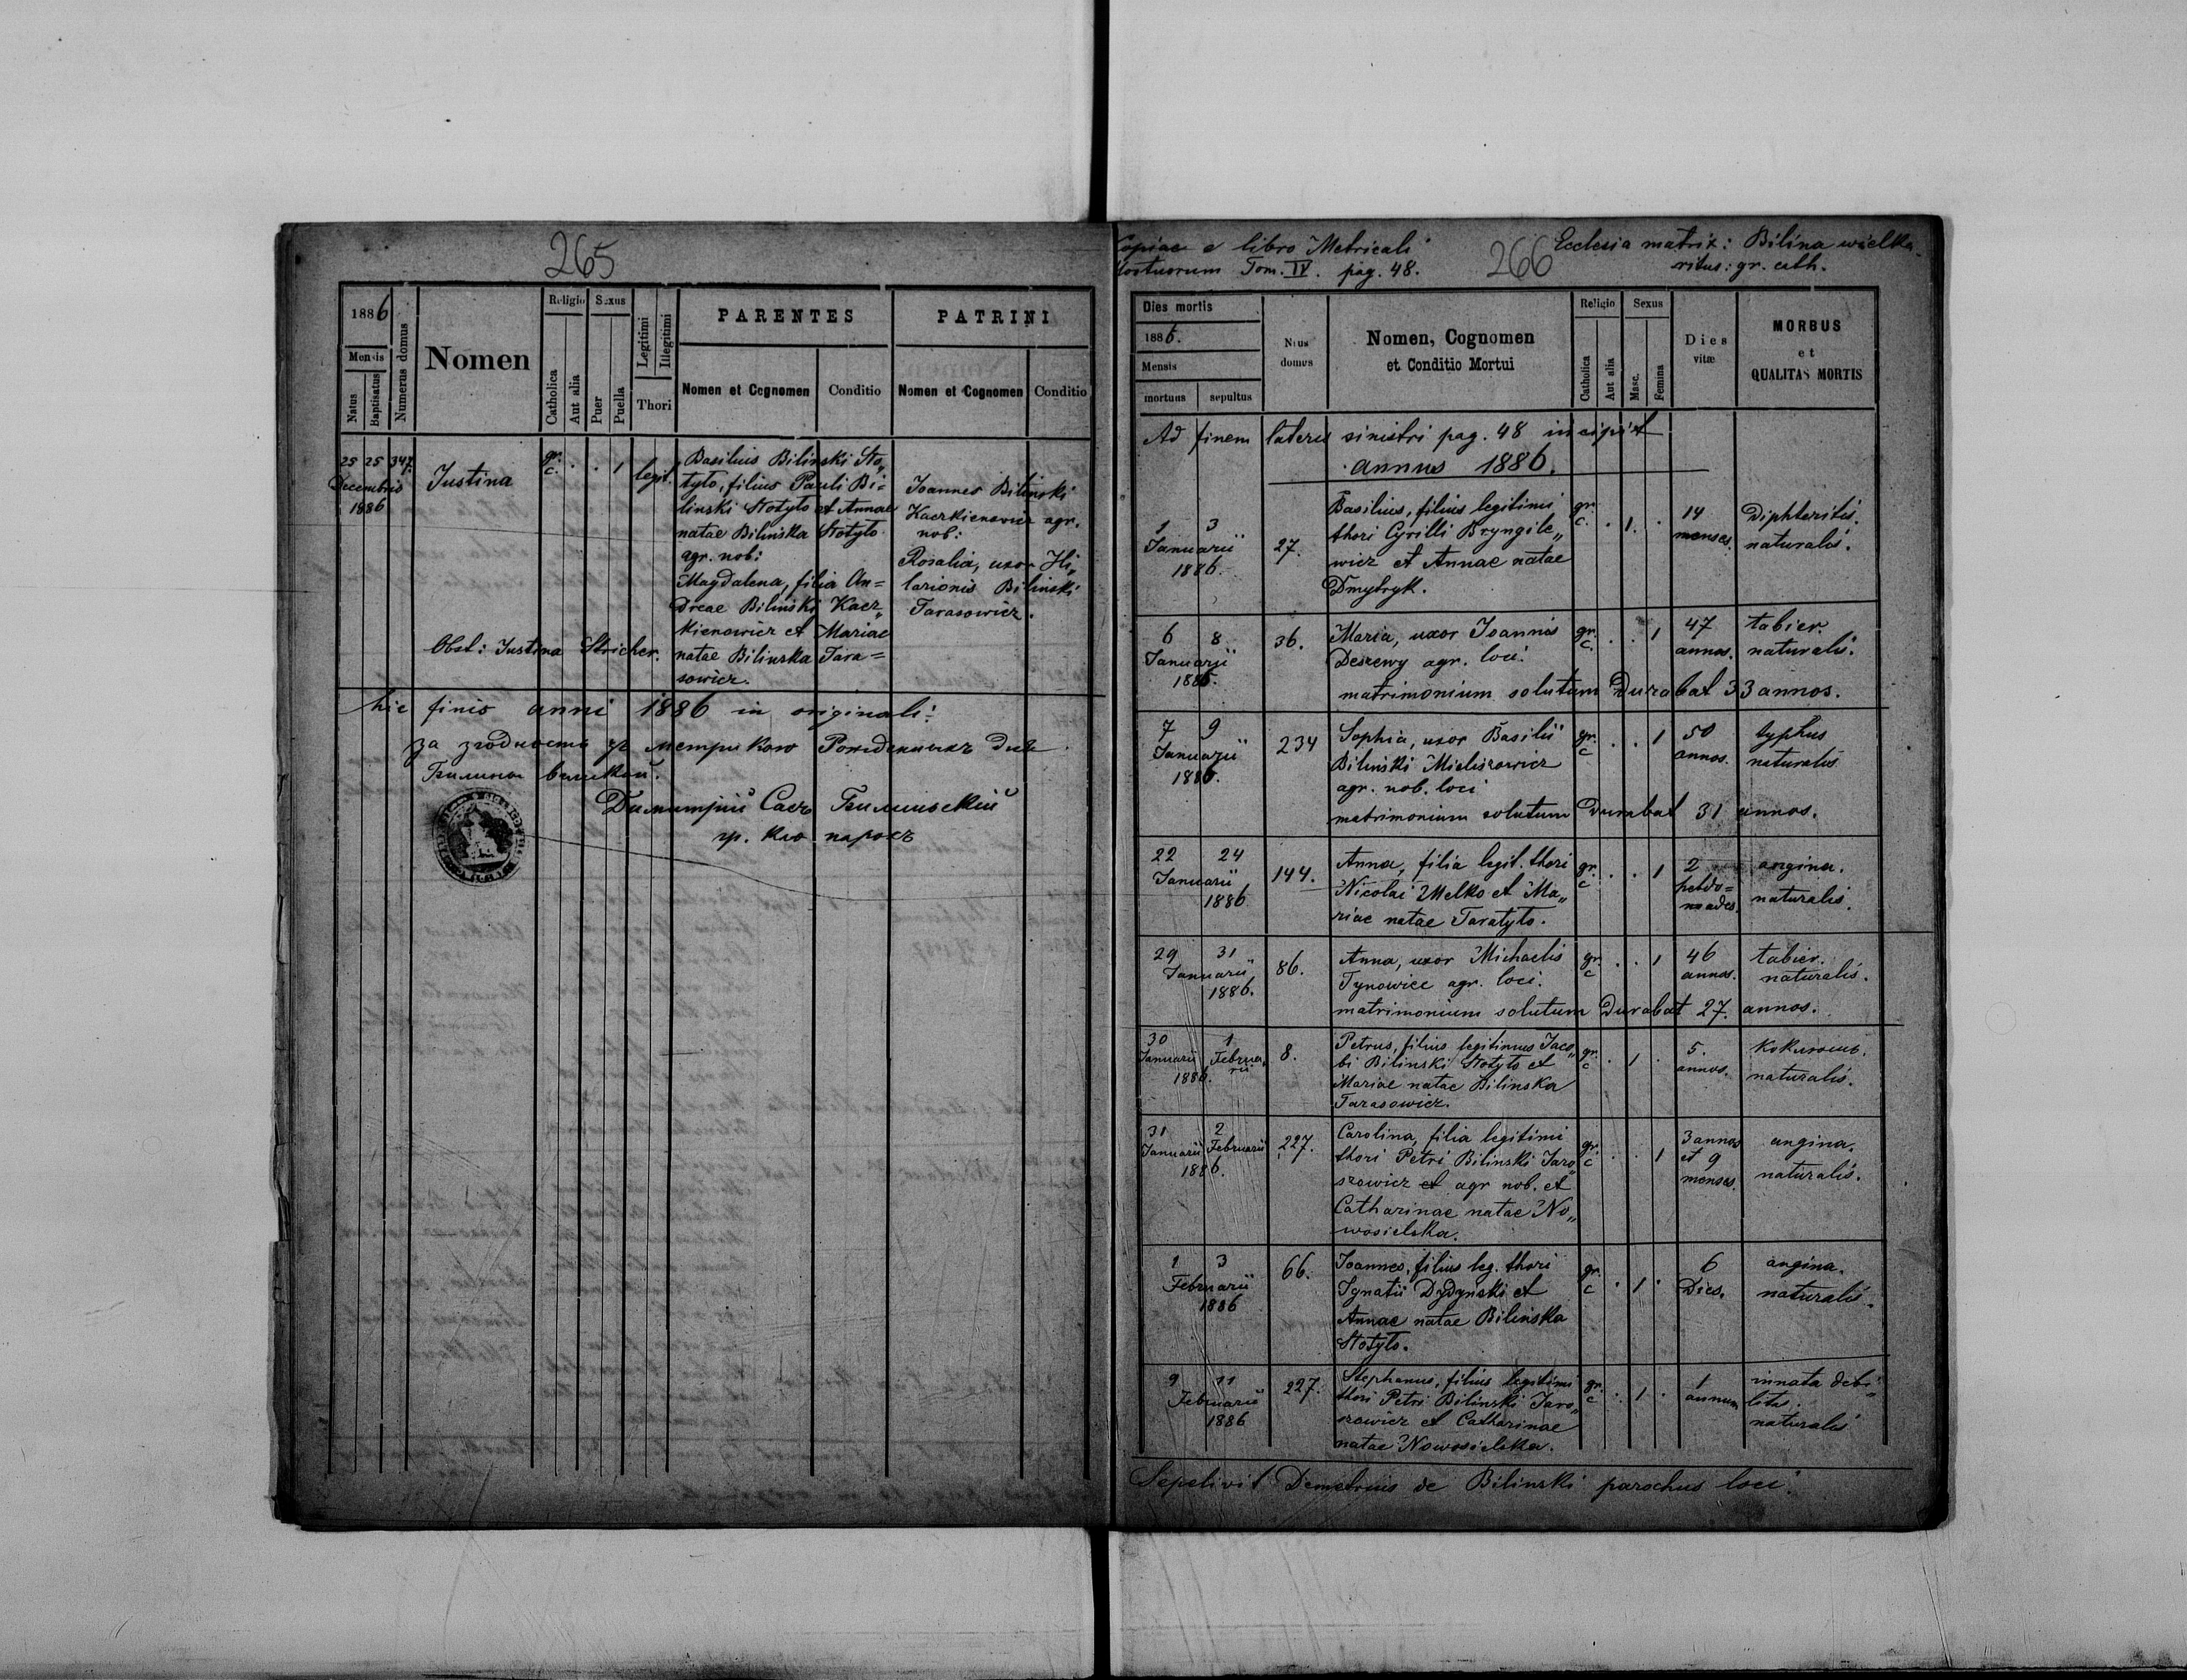 265
1886
Mensis
Natus
Baptisatus
Numerus domus
Nomen
Religio
Catholica
Aut alia
Sexus
Puer
Puella
Legitimi
Illegitimi
Thori
PARENTES
Nomen et Cognomen
Conditio
PATRINI
Nomen et Cognomen
Conditio
25 25 347.
Decembris
1886
Justina
gr.
c.
. . 1
legit.
Basilius Bilinski Sto„
tyło, filius Pauli Bi=
linski Stotyło et Annae
natae Bilinska Stotyło
agr. nob:
Magdalena, filia An=
dreae Bilinski Kacz„
kienowicz et Mariae
natae Bilinska Tara=
sowicz.
Joannes Bilinski
Kaczkienowicz agr.
nob:
Rosalia, uxor Hi„
larionis Bilinski
Tarasowicz.
Obst: Justina Stricher.
hic finis anni 1886 in originali.
За згодность зъ метрикою
Димитрій Билиньскій
гр. кат парохъ
Copiae e libro Metricali
Mortuorum Tom. IV. pag. 48.
266
Ecclesia matrix: Bilina wielka
ritus: gr. cath.
Dies mortis
1886.
Mensis
mortuus
sepultus
Nrus
domus
Nomen, Cognomen
et Conditio Mortui
Religio
Catholica
Aut alia
Sexus
Masc.
Femina
Dies
vitæ
MORBUS
et
QUALITAS MORTIS
Ad finem lateris sinistri pag. 48 incipit
annus 1886.
1 3
Januarii
1886.
27.
Basilius, filius legitimi
thori Cyrilli Bryngile„
wicz et Annae natae
Dmytryk.
gr.
c. . 1. .
14
menses.
Diphteritis.
naturalis.
6 8
Januarii
1886.
36.
Maria, uxor Joannis
Deszewy agr. loci.
matrimonium solutum durabat 33 annos.
gr.
c. . . 1
47
annos.
tabier.
naturalis.
7 9
Januarii
1886.
234
Sophia, uxor Basilii
Bilinski Mieliszowicz
agr. nob. loci
matrimonium solutum durabat 31 annos.
gr.
c . . 1
50
annos.
typhus
naturalis
22 24
Januarii
1886
144.
Anna, filia legit. thori
Nicolai Melko et Ma„
riae natae Taratyło.
gr.
c . . 1
2
hebdo=
mades.
angina.
naturalis.
29 31
Januarii
1886.
86.
Anna, uxor Michaelis
Tynowice agr. loci.
matrimonium solutum durabat 27. annos.
gr.
c . . 1
46
annos.
tabier.
naturalis.
30 1
Januarii Februa„
rii
1886.
8.
Petrus, filius legitimus Jaco„
bi Bilinski Stotyło et
Mariae natae Bilinska
Tarasowicz.
gr.
c . 1 .
5.
annos.
naturalis.
31 2
Januarii Februarii
1886.
227.
Carolina, filia legitimi
thori Petri Bilinski Jaro„
szowicz et agr nob. et
Catharinae natae No„
wosielska.
gr.
c . . 1
3 annos
et 9
menses.
angina.
naturalis.
1 3
Februarii
1886
66.
Joannes, filius leg. thori
Ignatii Dydynski et
Annae natae Bilinska
Stotyło.
gr.
c . 1 .
6
Dies.
angina.
naturalis.
9 11
Februarii
1886
227.
Stephanus, filius legitimi
thori Petri Bilinski Jaro„
szowicz et Catharinae
natae Nowosielska.
gr.
c . 1 .
1
annum
innata debi„
litas.
naturalis
Sepelivit Demetrius de Bilinski parochus loci.